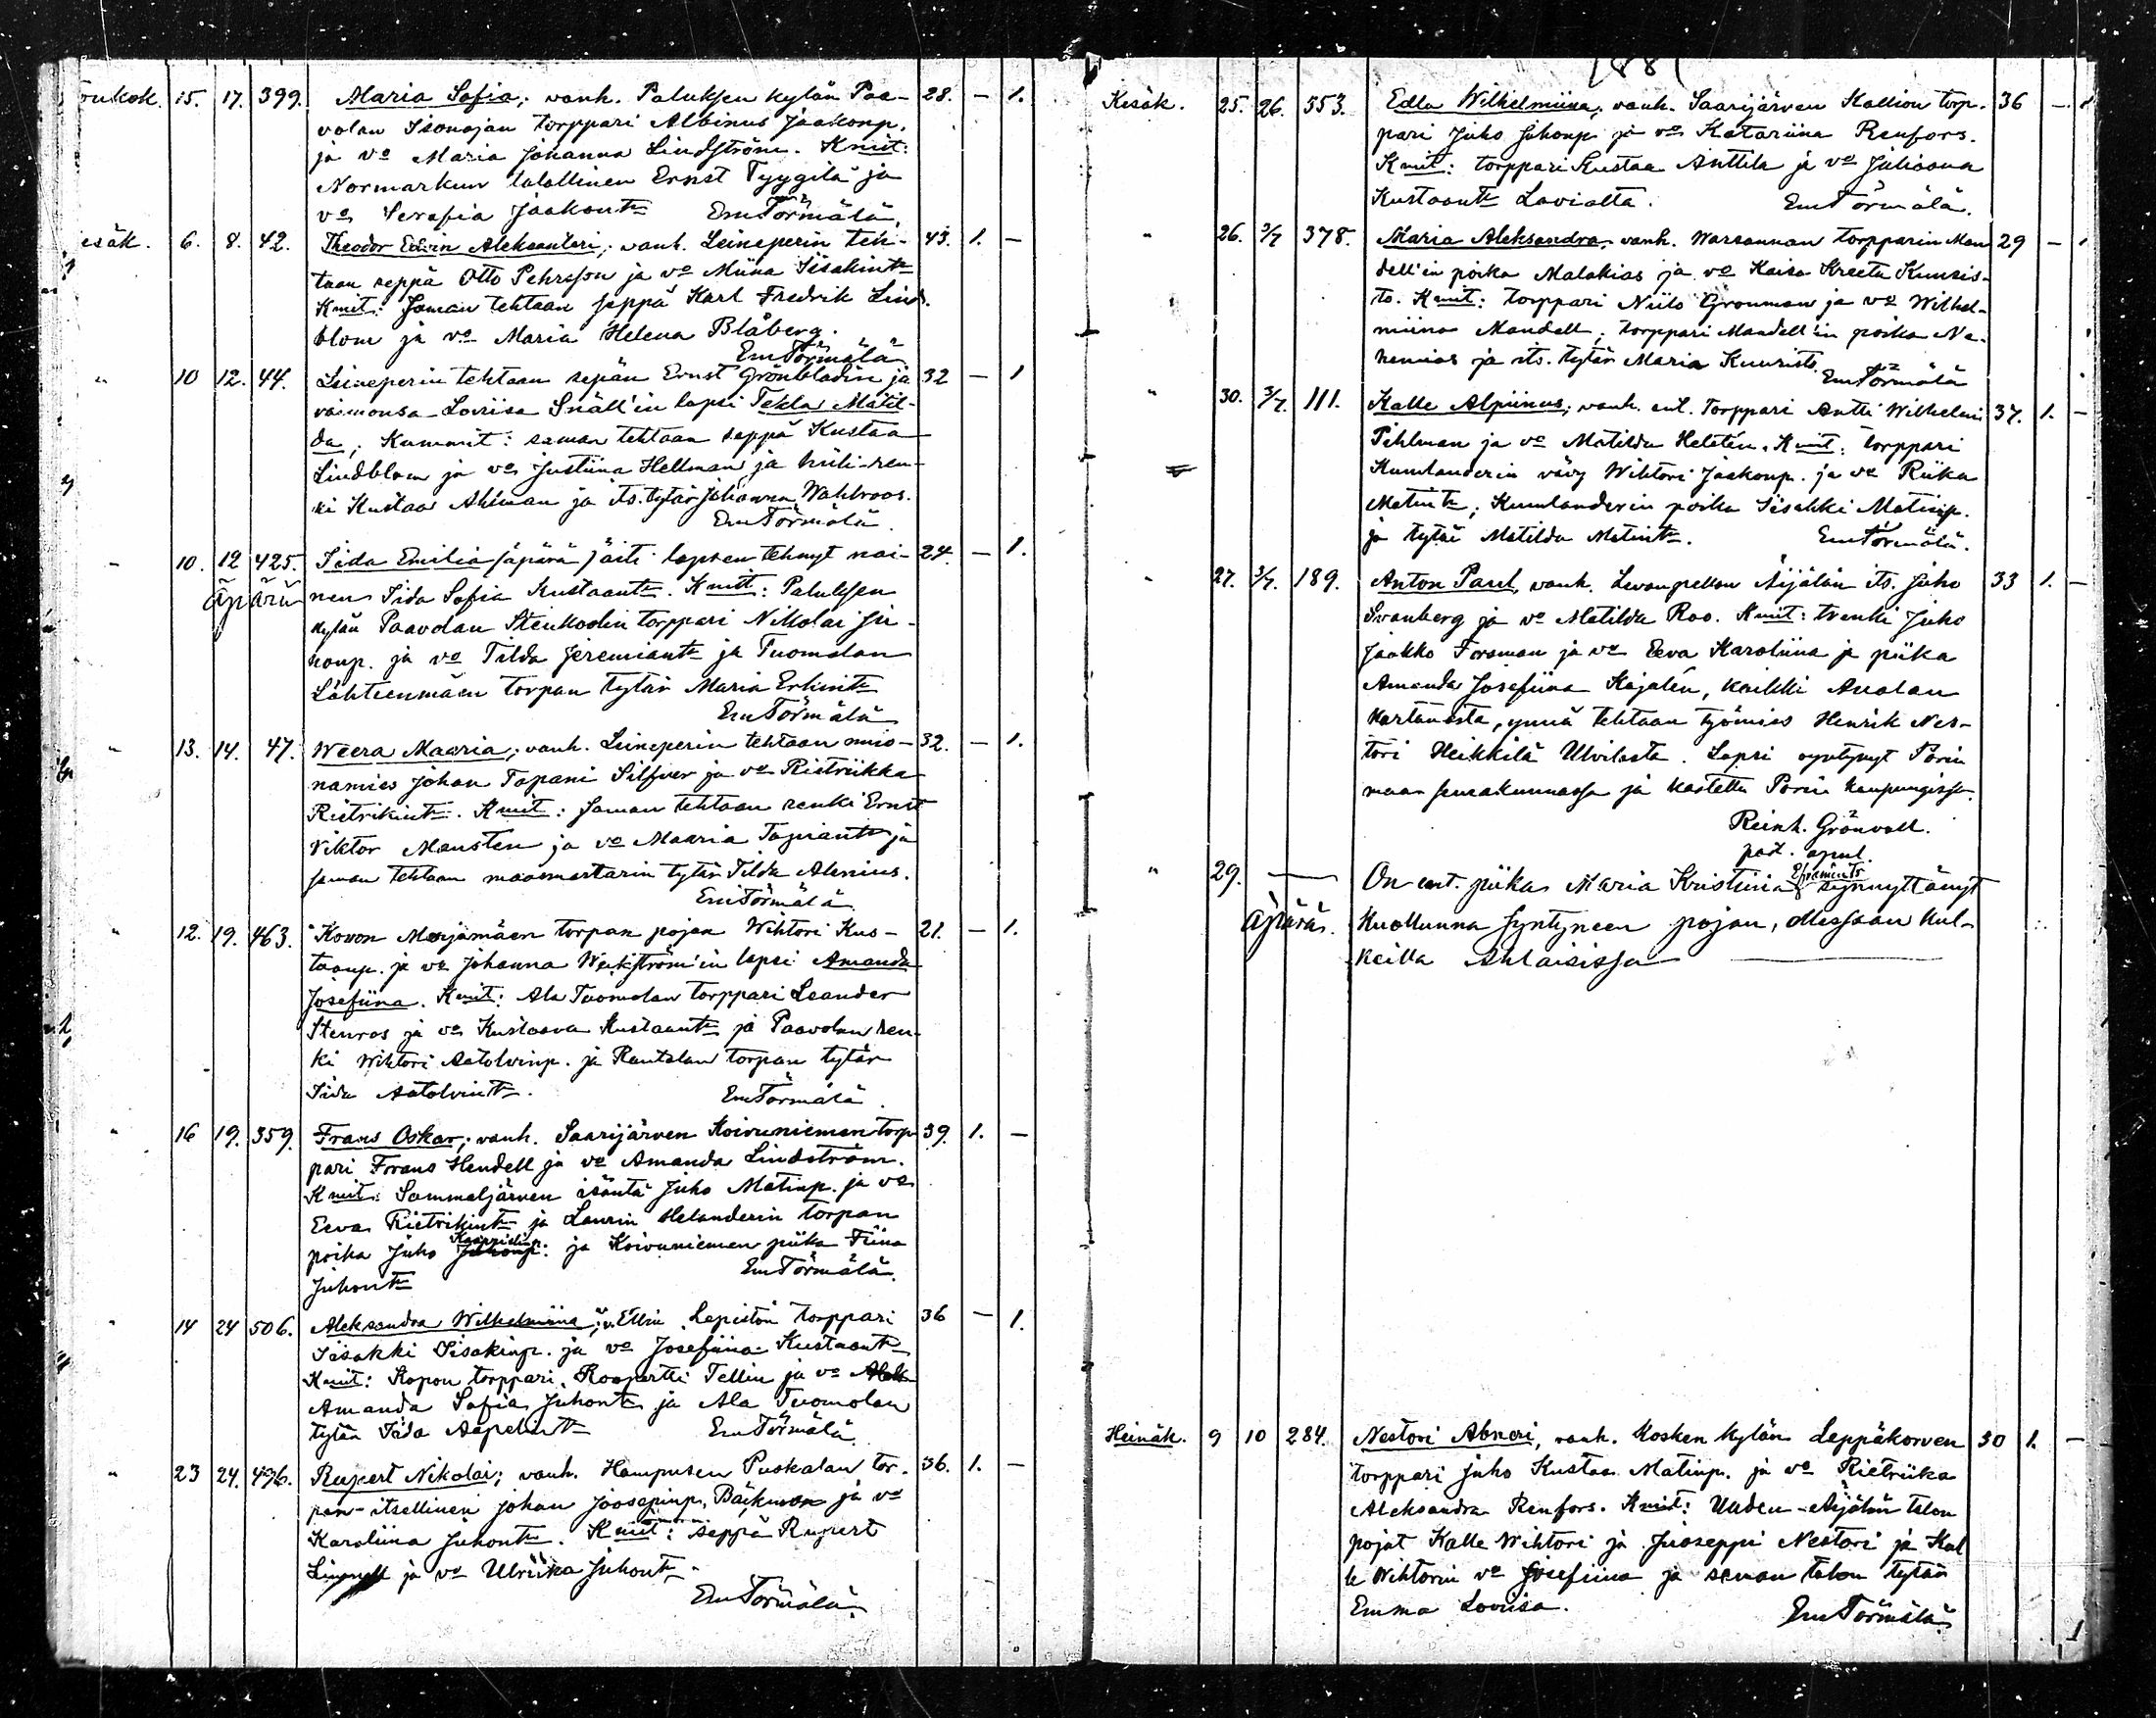 1881
Toukok. 15. 17. 399. Maria Sofia; vanh. Paluksen kylän Paa- 28. — 1.
volan Isonojan torppari Albinus Jaakonp.
ja vo Maria Johanna Lindström. Kmit:
Normarkun talollinen Ernst Tyygilä ja
vo Serafia Jaakontr Em Törmälä.
Kesäk. 6. 8. 42. Theodor Edvin Aleksanteri; vanh. Leineperin teh- 43. 1. —
taan seppä Otto Pehrsson ja vo Miina Iisakintr
Kmit: Saman tehtaan seppä Karl Fredrik Lind-
blom ja vo Maria Helena Blåberg.
Em Törmälä
" 10 12. 44. Leineperin tehtaan sepän Ernst Grönbladin ja 32 — 1
vaimonsa Loviisa Snäll'in lapsi Tekla Matil-
da; Kummit: saman tehtaan seppä Kustaa
Lindblom ja vo Justiina Hellman ja hiili-ren-
ki Kustaa Ahlman ja its. tytär Johanna Wahlroos.
Em Törmälä.
" 10. 12 425. Iida Emilia (äpärä) äiti lapsen tehnyt nai- 24. — 1.
äpärä nen Iida Sofia Kustaantr. Kmit: Paluksen
kylän Paavolan Stenkoolin torppari Nikolai Ju-
honp. ja vo Tilda Jeremiantr ja Tuomolan
Lähteenmäen torpan tytär Maria Erkintr
Em Törmälä
" 13. 14. 47. Weera Maaria; vanh. Leineperin tehtaan muo- 32. — 1.
namies Johan Tapani Silfver ja vo Rietriikka
Rietrikintr. Kmit: Saman tehtaan renki Ernst
Viktor Mansten ja vo Maaria Tapiantr ja
saman tehtaan maamestarin tytär Tilda Alenius.
Em Törmälä.
" 12. 19. 463. Kovon Marjamäen torpan pojan Wihtori Kus- 21. — 1.
taanp. ja vo Johanna Weckström'in lapsi Amanda
Josefiina. Kmit: Ala Tuomolan torppari Leander
Stenros ja vo Kustaava Kustaantr ja Paavolan ren-
ki Wihtori Aatolvinp. ja Rantalan torpan tytär
Iida Aatolvintr. Em Törmälä.
" 16 19. 359. Frans Oskar; vanh. Saarijärven Koivuniemen torp- 39. 1. —
pari Frans Hendell ja vo Amanda Lindström.
Kmit: Sammaljärven isäntä Juho Matinp. ja vo
Eeva Rietrikintr ja Laurin Helanderin torpan
poika Juho Kaapridinp. ja Koivuniemen piika Fiina
Juhontr Em Törmälä.
" 14 24 506. Aleksandra Wilhelmiina; v. Ellin Lepistön torppari 36 — 1.
Iisakki Iisakinp. ja vo Josefiina Kustaantr
Kmit: Kopon torppari Roopertti Tellin ja vo
Amanda Sofia Juhontr ja Ala Tuomolan
tytär Iida Aapelintr Em Törmälä.
" 23 24. 496. Rupert Nikolai; vanh. Hampusen Puskalan tor- 36. 1. —
pan-itsellinen Johan Joosepinp. Bäckman ja vo
Karoliina Juhontr. Kmit: seppä Rupert
Linnell ja vo Ulriika Juhontr.
Em Törmälä.
Kesäk. 25. 26. 553. Edla Wilhelmiina; vanh. Saarijärven Kallion torp- 36 — 1
pari Juho Juhonp. ja vo Katariina Renfors.
Kmit: torppari Kustaa Anttila ja vo Juliaana
Kustaantr Lavialta. Em Törmälä.
" 26. 3/7 378. Maria Aleksandra; vanh. Warsannan torpparin Man- 29 — 1
dell'in poika Malakias ja vo Kaisa Kreeta Kuusis-
to. Kmit: torppari Niilo Gronman ja vo Wilhel-
miina Mandell, torppari Mandell'in poika Ne-
hemias ja its. tytär Maria Kuuristo
Em Törmälä
" 30. 3/7. 111. Kalle Alpiinus; vanh. ent. torppari Antti Wilhelmi 37. 1. —
Pihlman ja vo Matilda Heletén. Kmit: torppari
Kumlanderin vävy Wihtori Jaakonp. ja vo Riika
Matintr, Kumlanderin poika Iisakki Matinp.
ja tytär Matilda Matintr. Em Törmälä.
" 27. 3/7. 189. Anton Paul, vanh. Levanpellon Äijälän its. Juho 33 1. —
Svanberg ja vo Matilda Roo. Kmit: trenki Juho
Jaakko Forsman ja vo Eeva Karoliina ja piika
Amanda Josefiina Kajalén, kaikki Anolan
kartanosta, ynnä tehtaan työmies Henrik Nes-
tori Heikkilä Ulvilasta. Lapsi syntynyt Porin
maa seurakunnassa ja kastettu Porin kaupungissa.
Reinh. Grönvall.
past. apul.
" 29. — On ent. piika Maria Kristiina Efraimintr synnyttänyt
äpärä. kuolluna syntyneen pojan, ollessaan kul-
keilla Ahlaisissa —
Heinäk. 9 10 284. Nestori Abneri, vanh. Kosken kylän Leppäkorven 30 1. —
torppari Juho Kustaa Matinp. ja vo Rietriika
Aleksandra Renfors. Kmit: Uuden-Äijälän talon
pojat Kalle Wihtori ja Juoseppi Nestori ja Kal-
le Wihtorin vo Josefiina ja saman talon tytär
Emma Loviisa. Em Törmälä